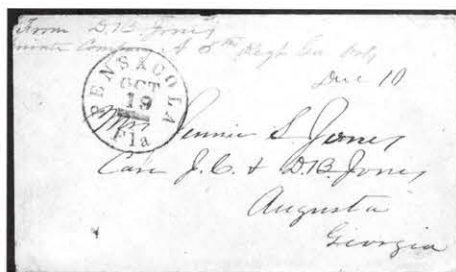 From D.B. Jones
Private Company A 5th Regt Geo Vols
Due 10
PENSACOLA
OCT
19
Fla
Mrs Jennie S. Jones
Care J.C. & D.B. Jones
Augusta
Georgia